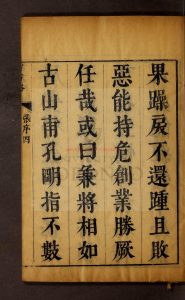 果躁戾不還踵且敗
惡能持危創業勝厥
任哉或曰兼將相如
古山甫孔明指不數
張序四